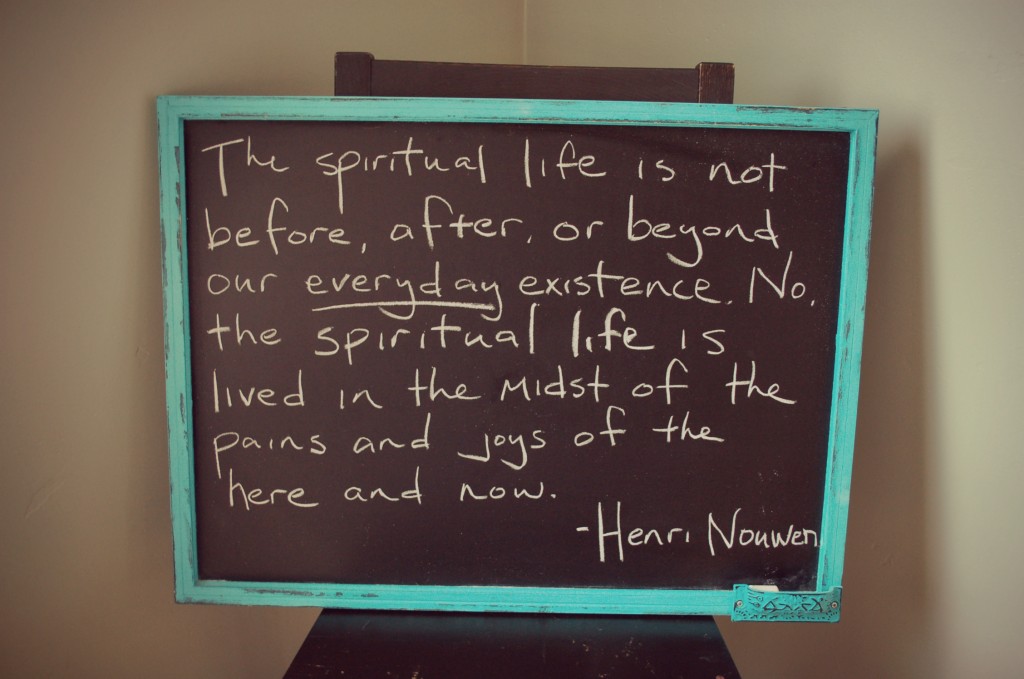 The spiritual life is not
before, after, or beyond
our everyday existence. No,
the spiritual life is
lived in the midst of the
pains and joys of the
here and now.
-Henri Nouwen